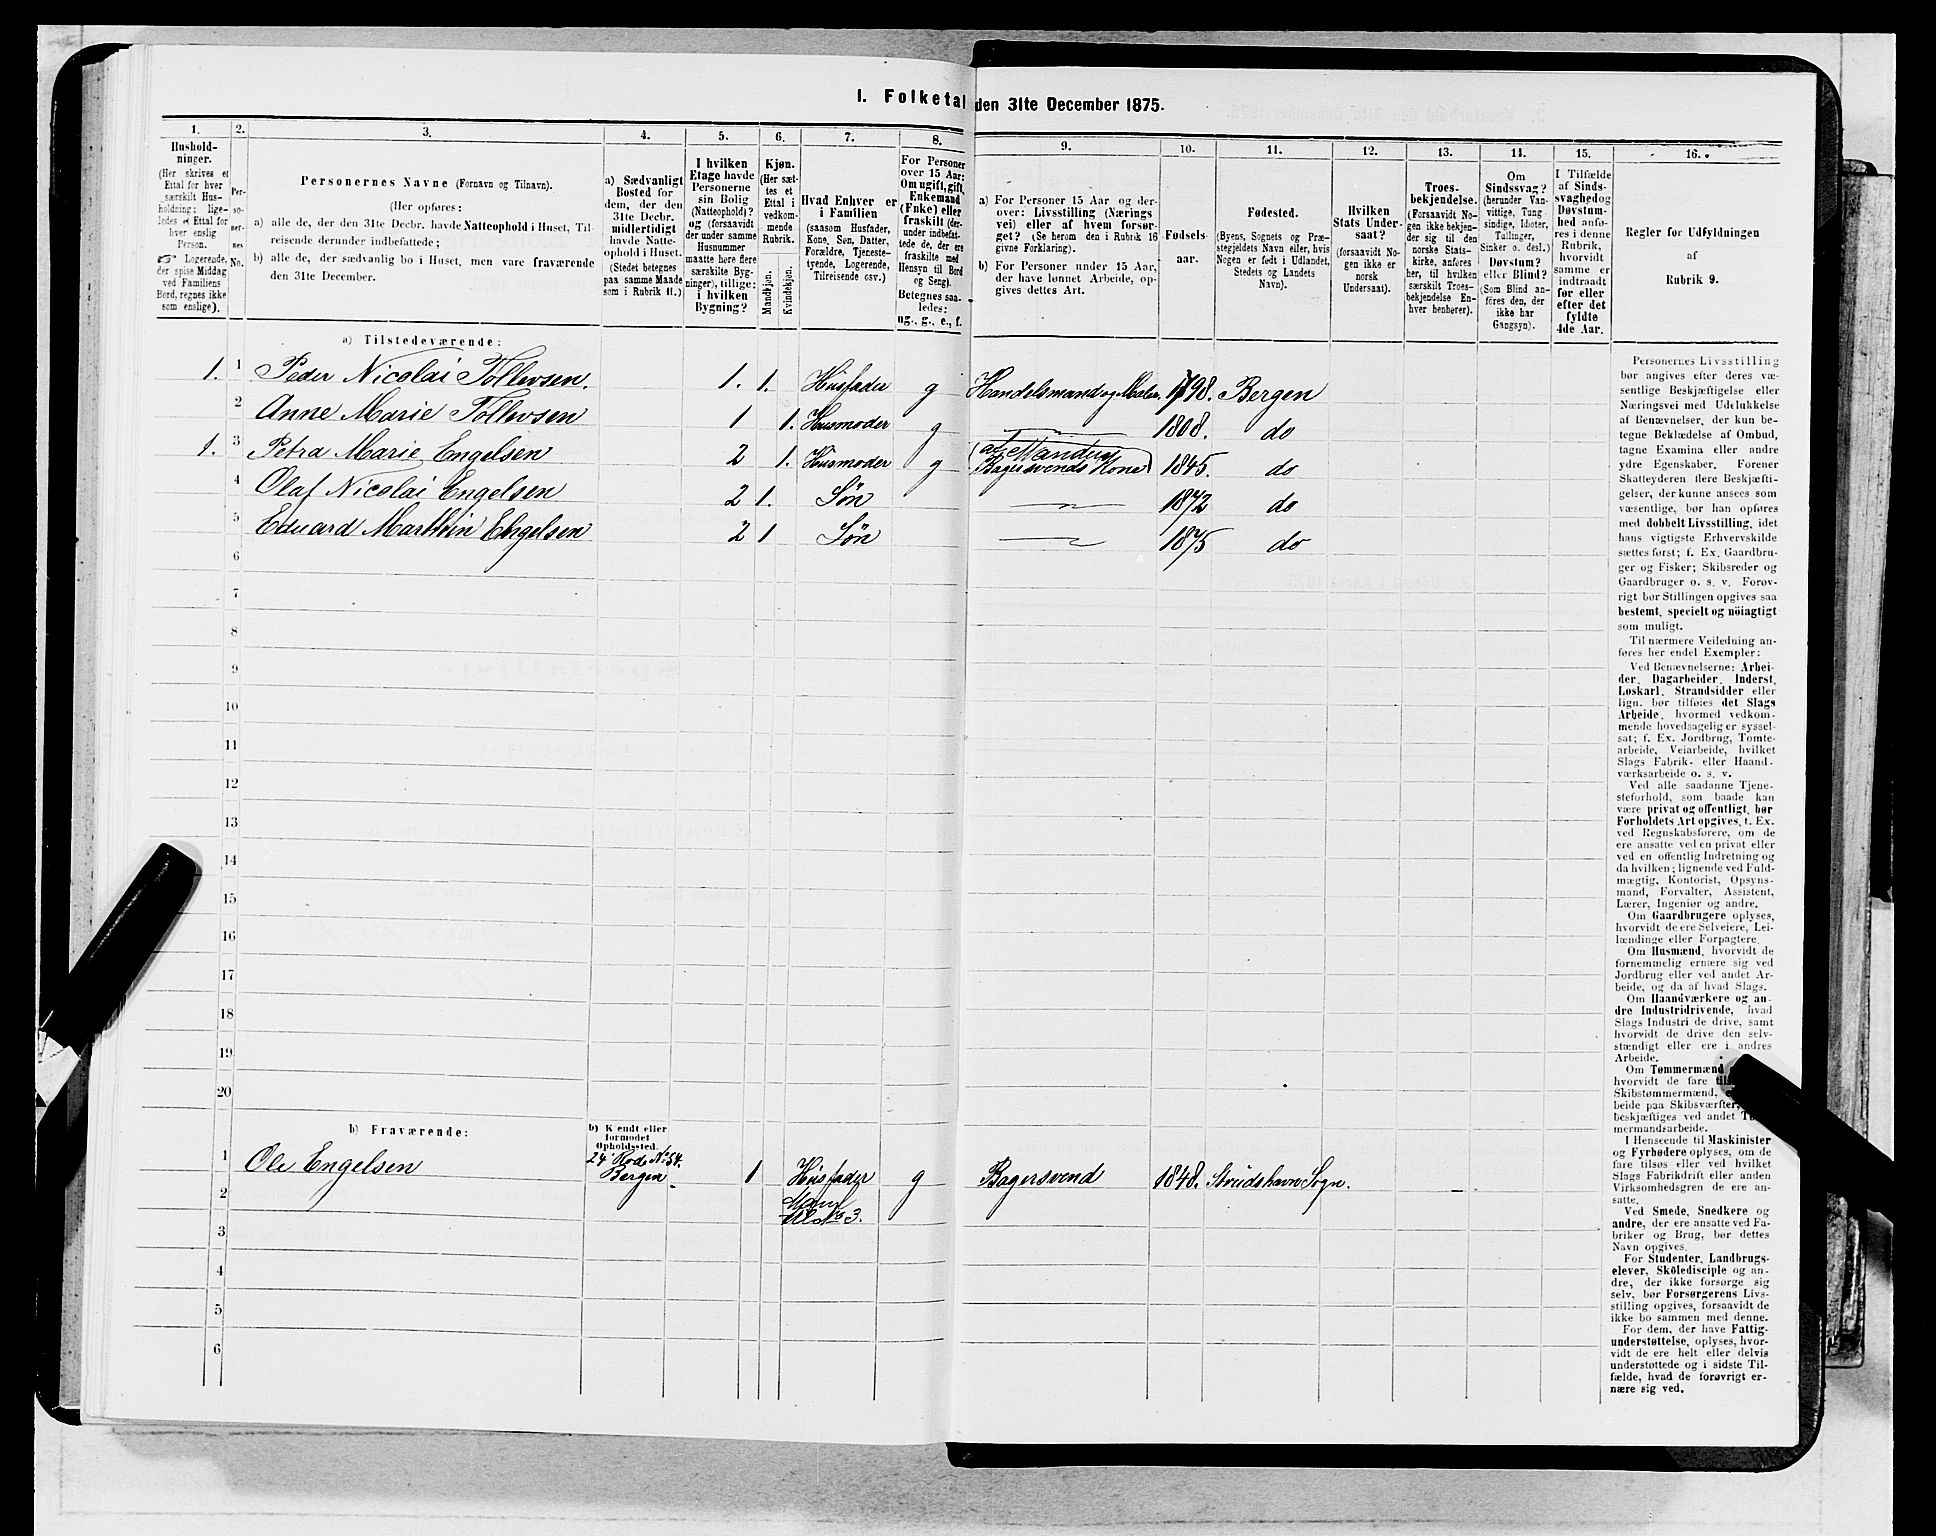 I. Folketal den 31te December 1875.
1.
Hushold-
ninger.
(Her skrives et
Ettal for hver
særskilt Hus-
holdning; lige-
ledes et Ettal for
hver enslig
Person.
☞ Logerende,
der spise Middag
ved Familiens
Bord, regnes ikke
som enslige).
2.
Per-
so-
ner-
nes
No.
3.
Personernes Navne (Fornavn og Tilnavn).
(Her opføres:
a) alle de, der den 31te Decbr. havde Natteophold i Huset, Til-
reisende derunder indbefattede;
b) alle de, der sædvanlig bo i Huset, men vare fraværende
den 31te December.
4.
a) Sædvanligt
Bosted for
dem, der den
31te Decbr.
midlertidigt
havde Natte-
ophold i Huset.
(Stedet betegnes
paa samme Maade
som i Rubrik 11.)
5.
I hvilken
Etage havde
Personerne
sin Bolig
(Natteophold)?
og (forsaavidt
der under samme
Husnummer
maatte høre flere
særskilte Byg-
ninger), tillige:
i hvilken
Bygning?
6.
Kjøn.
(Her sæt-
tes et
Ettal i
vedkom-
mende
Rubrik.
Mandkjøn.
Kvindekjøn.
7.
Hvad Enhver er
i Familien
(saasom Husfader,
Kone, Søn, Datter,
Forældre, Tjeneste-
tyende, Logerende,
Tilreisende osv.)
8.
For Personer
over 15 Aar:
Om ugift, gift,
Enkemand
(Enke) eller
fraskilt (der-
under indbefat-
tede de, der ere
fraskilte med
Hensyn til Bord
og Seng).
Betegnes saa-
ledes:
ug., g., e., f.
9.
a) For Personer 15 Aar og der-
over: Livsstilling (Nærings
vei) eller af hvem forsør-
get? (Se herom den i Rubrik 16
givne Forklaring).
b) For Personer under 15 Aar,
der have lønnet Arbeide, op-
gives dettes Art.
10.
Fødsels-
aar.
11.
Fødested.
(Byens, Sognets og Præ-
stegjeldets Navn eller, hvis
Nogen er født i Udlandet,
Stedets og Landets
Navn).
12.
Hvilken
Stats Under-
saat?
(forsaavidt No-
gen ikke er
norsk
Undersaat).
13.
Troes-
bekjendelse.
(Forsaavidt No-
gen ikke bekjen-
der sig til den
norske Stats-
kirke, anføres
her, til hvilken
særskilt Troes-
bekjendelse En-
hver henhører).
14.
Om
Sindssvag?
(herunder Van-
vittige, Tung
sindige, Idioter,
Tullinger,
Sinker o. desl.)
Døvstum?
eller Blind?
(Som Blind an-
føres den, der
ikke har
Gangsyn).
15.
I Tilfælde
af Sinds-
svaghed og
Døvstum-
hed anfø-
res i denne
Rubrik,
hvorvidt
samme er
indtraadt
før eller
efter det
fyldte
4de Aar.
16.
Regler for Udfyldningen
af
Rubrik 9.
a) Tilstedeværende:
1. 1 Peder Nicolai Tollevsen. 1. 1. Husfader g Handelsmand og Maler. 1798. Bergen
2 Anne Marie Tollevsen 1 1. Husmoder g 1808. do
1. 3 Petra Marie Engelsen 2 1. Husmoder g Bagersvends Kone 1845. do
4 Olaf Nicolai Engelsen 2 1. Søn 1872 do
5 Eduard Marthin Engelsen 2 1 Søn 1875 do
6
7
8
9
10
11
12
13
14
15
16
17
18
19
20
b) Fraværende:
b) Kjendt eller
formodet
Opholdssted.
1 Ole Engelsen 24 Rode No. 54. Bergen 1 Husfader g Bagersvend 1848. Sogn.
2
3
4
5
6
Personernes Livsstilling
bør angives efter deres væ-
sentlige Beskjæftigelse eller
Næringsvei med Udelukkelse
af Benævnelser, der kun be-
tegne Beklædelse af Ombud,
tagne Examina eller andre
ydre Egenskaber. Forener
Skatteyderen flere Beskjæfti-
gelser, der kunne ansees som
væsentlige, bør han opføres
med dobbelt Livsstilling, idet
hans vigtigste Erhvervskilde
sættes først; f. Ex. Gaardbru-
ger og Fisker; Skibsreder og
Gaardbruger o. s. v. Forøv-
rigt bør Stillingen opgives saa
bestemt, specielt og nöiagtigt
som muligt.
Til nærmere Veiledning an-
føres her endel Exempler:
Ved Benævnelserne: Arbei-
der, Dagarbeider, Inderst,
Løskarl, Strandsidder eller
lign. bør tilføies det Slags
Arbeide, hvormed vedkom-
mende hovedsagelig er syssel-
sat; f. Ex. Jordbrug, Tomte-
arbeide, Veiarbeide, hvilket
Slags Fabrik- eller Haand-
værksarbeide o. s. v.
Ved alle saadanne Tjene-
steforhold, som baade kan
være privat og offentligt, bør
Forholdets Art opgives, t. Ex.
ved Regnskabsførere, om de
ere ansatte ved en privat eller
ved en offentlig Indretning og
da hvilken; lignende ved Fuld-
mægtig, Kontorist, Opsyns-
mand, Forvalter, Assistent,
Lærer, Ingeniør og andre.
Om Gaardbrugere oplyses,
hvorvidt de ere Selveiere, Lei-
lændinge eller Forpagtere.
Om Husmænd, hvorvidt de
fornemmelig ernære sig ved
Jordbrug eller ved andet Ar-
beide, og da af hvad Slags.
Om Haandværkere og an-
dre Industridrivende, hvad
Slags Industri de drive, samt
hvorvidt de drive den selv-
stændigt eller ere i andres
Arbeide.
Om Tømmermænd
hvorvidt de fare
Skibstømmermænd,
beide paa Skibsværfter,
beskjæftiges ved andet
mermandsarbeide.
I Henseende til Maskinister
og Fyrbødere oplyses, om de
fare tilsøs eller ved hvilket
Slags Fabrikdrift eller anden
Virksomhedsgren de ere an-
satte.
Ved Smede, Snedkere og
andre, der ere ansatte ved Fa-
briker og Brug, bør dettes
Navn opgives.
For Studenter, Landbrugs-
elever, Skoledisciple og an-
dre, der ikke forsørge sig
selv, bør Forsørgerens Livs-
stilling opgives, forsaavidt de
ikke bo sammen med denne.
For dem, der have Fattig-
understøttelse, oplyses, hvor-
vidt de ere helt eller delvis
understøttede og i sidste Til-
fælde, hvad de forøvrigt er-
nære sig ved.